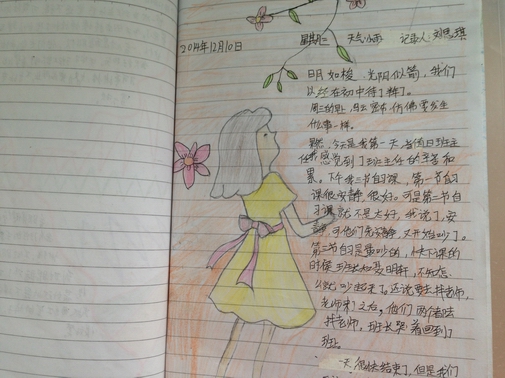 2014年12月10日 星期三 天气小雨 记录人:刘思琪
日月如梭,光阴似箭,我们
以经在初中待了
周三的早上,
什么事一样。
果然,今天是我第一天当值日班主
任我感觉到了班主任的辛苦和
累。下午我三节自课,第一节自
课很安静,很好。可是第二节自
习课就不是太好,我说了,安
静,可他们先安静,又开始吵了。
第三节自习是最吵的,快下课的
时候班长和聂明轩,不知怎
么就吵起来了。还说要去找老师,
老师来了之后,他们两个都
找老师,班长哭着回到了
班。
一天很快结束了,但是我们